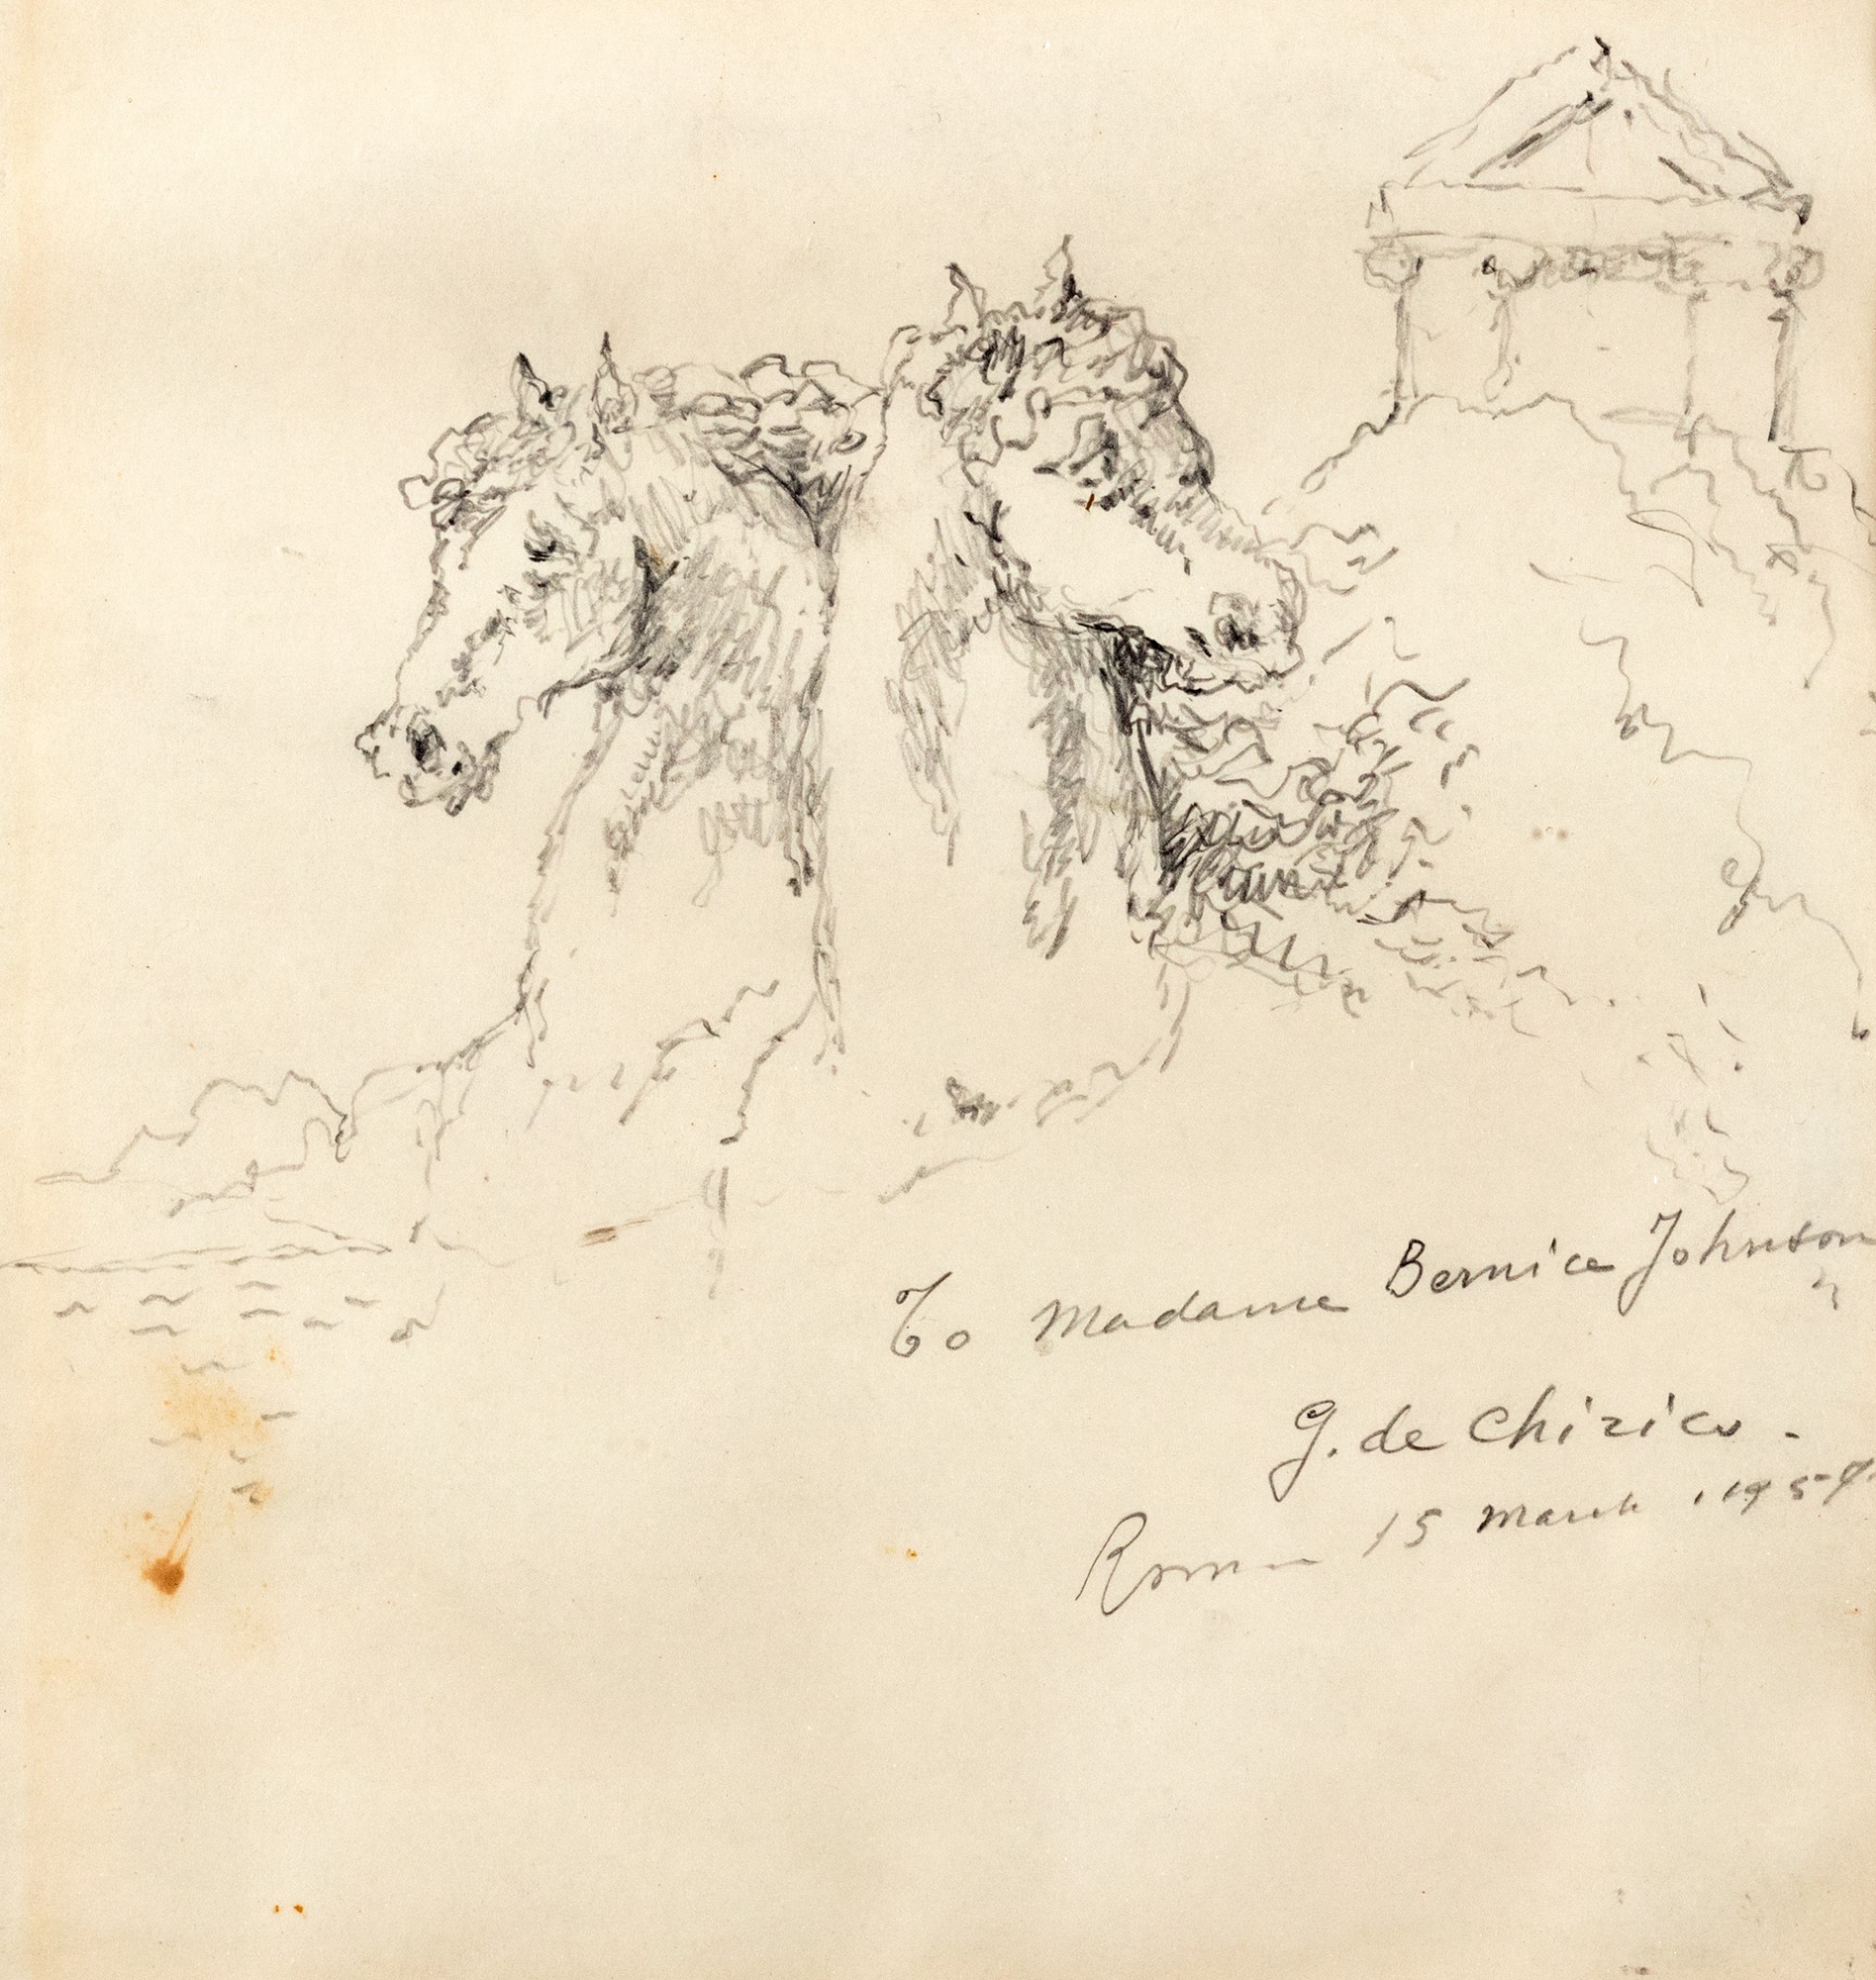 To Madame Bernice Johnson
G. de Chirico -
Rome 15 March, 1954.